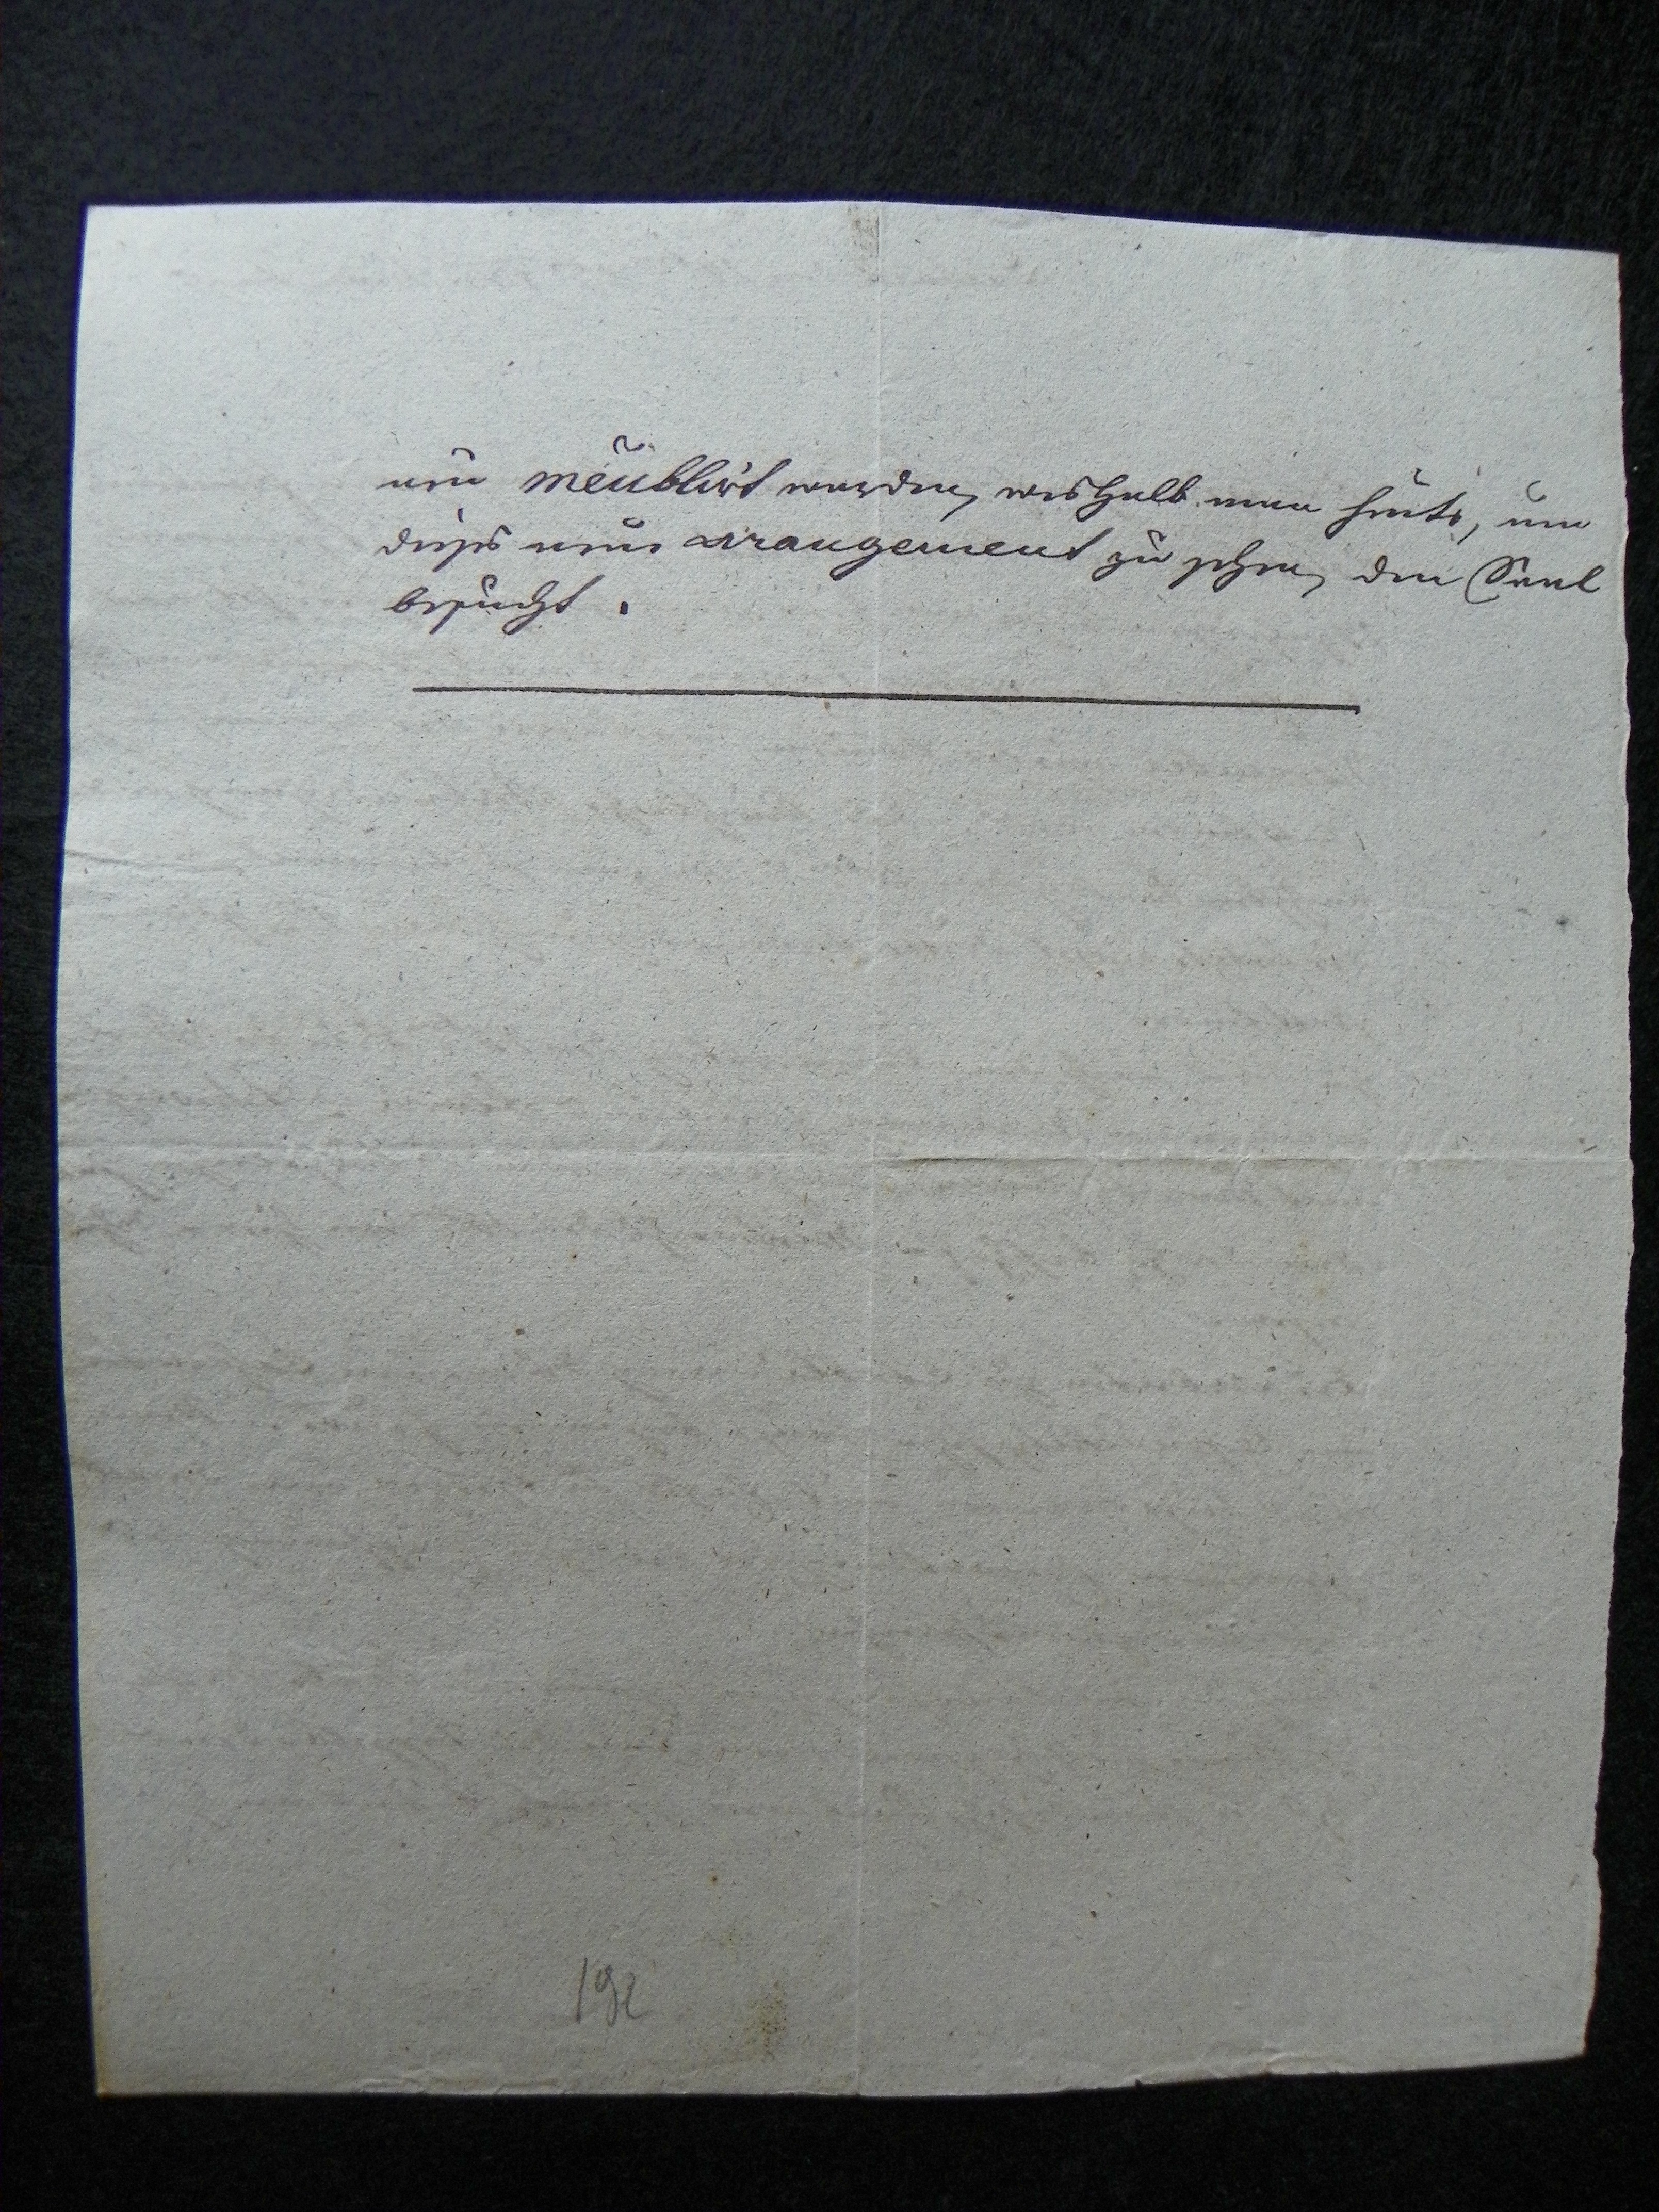 neu meublirt worden, weshalb man heute, um
dieses neue arrangement zu sehen, den Saal
besucht.
192